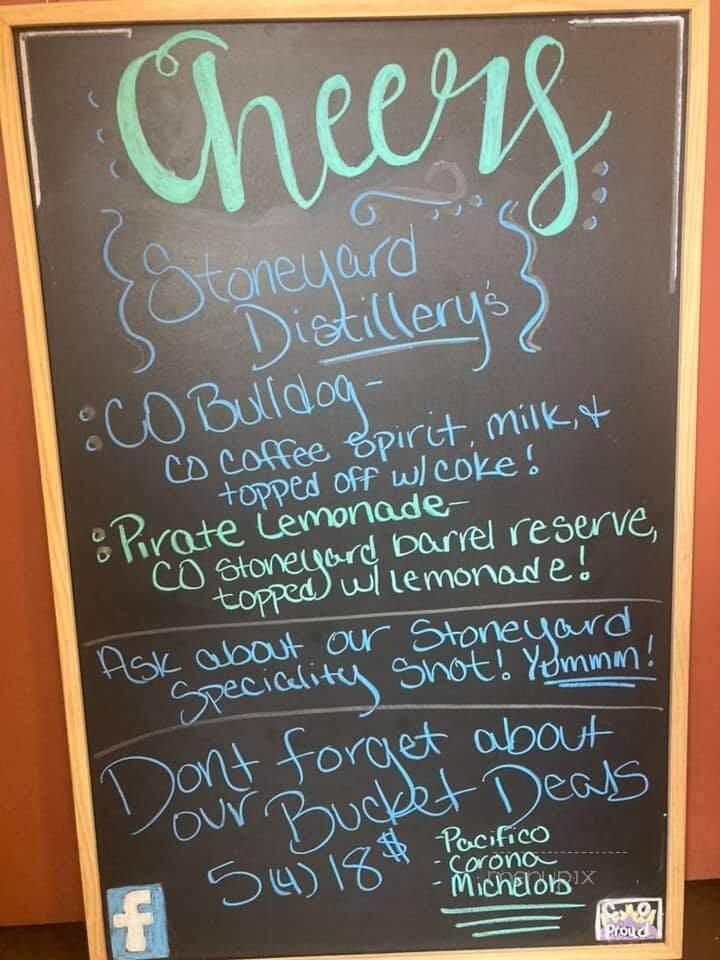 Cheers
Stoneyard
Distillery's
CO Bulldog-
CO Coffee Spirit, milk, &
topped off w/ coke!
Pirate Lemonade-
CO Stoneyard barrel reserve,
topped w/ lemonade!
Ask about our Stoneyard
Speciality Shot! Yummm!
Dont forget about
our Bucket Deals
5 (4) 18$
-Pacifico
-Corona
-Michelobs
menupix
f
Proud